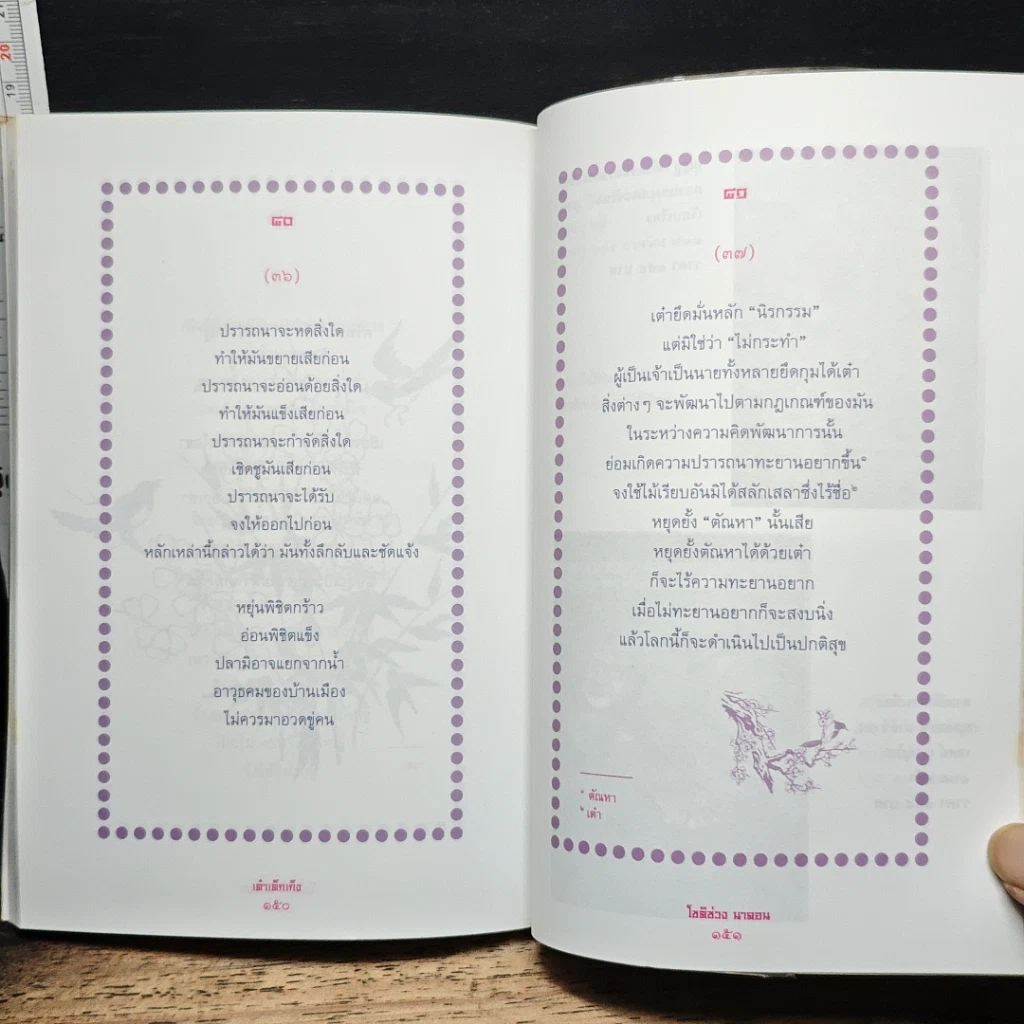 ๘๐
(๓๖)
ปรารถนาจะหดสิ่งใด
ทำให้มันขยายเสียก่อน
ปรารถนาจะอ่อนด้อยสิ่งใด
ทำให้มันแข็งเสียก่อน
ปรารถนาจะกำจัดสิ่งใด
เชิดชูมันเสียก่อน
ปรารถนาจะได้รับ
จงให้ออกไปก่อน
หลักเหล่านี้กล่าวได้ว่า มันทั้งลึกลับและชัดแจ้ง
หยุ่นพิชิตกร้าว
อ่อนพิชิตแข็ง
ปลามิอาจแยกจากน้ำ
อาวุธคมของบ้านเมือง
ไม่ควรมาอวดขู่คน
เต๋าเต็กเก็ง
๑๕๐
๘๐
(๓๗)
เต๋ายึดมั่นหลัก “นิรกรรม”
แต่มิใช่ว่า “ไม่กระทำ”
ผู้เป็นเจ้าเป็นนายทั้งหลายยึดกุมได้เต๋า
สิ่งต่างๆ จะพัฒนาไปตามกฎเกณฑ์ของมัน
ในระหว่างความคิดพัฒนาการนั้น
ย่อมเกิดความปรารถนาทะยานอยากขึ้น๑
จงใช้ไม้เรียบอันมิได้สลักเสลาซึ่งไร้ชื่อ๒
หยุดยั้ง “ตัณหา” นั้นเสีย
หยุดยั้งตัณหาได้ด้วยเต๋า
ก็จะไร้ความทะยานอยาก
เมื่อไม่ทะยานอยากก็จะสงบนิ่ง
แล้วโลกนี้ก็จะดำเนินไปเป็นปกติสุข
๑ ตัณหา
๒ เต๋า
โชติช่วง นาดอน
๑๕๑
20
19